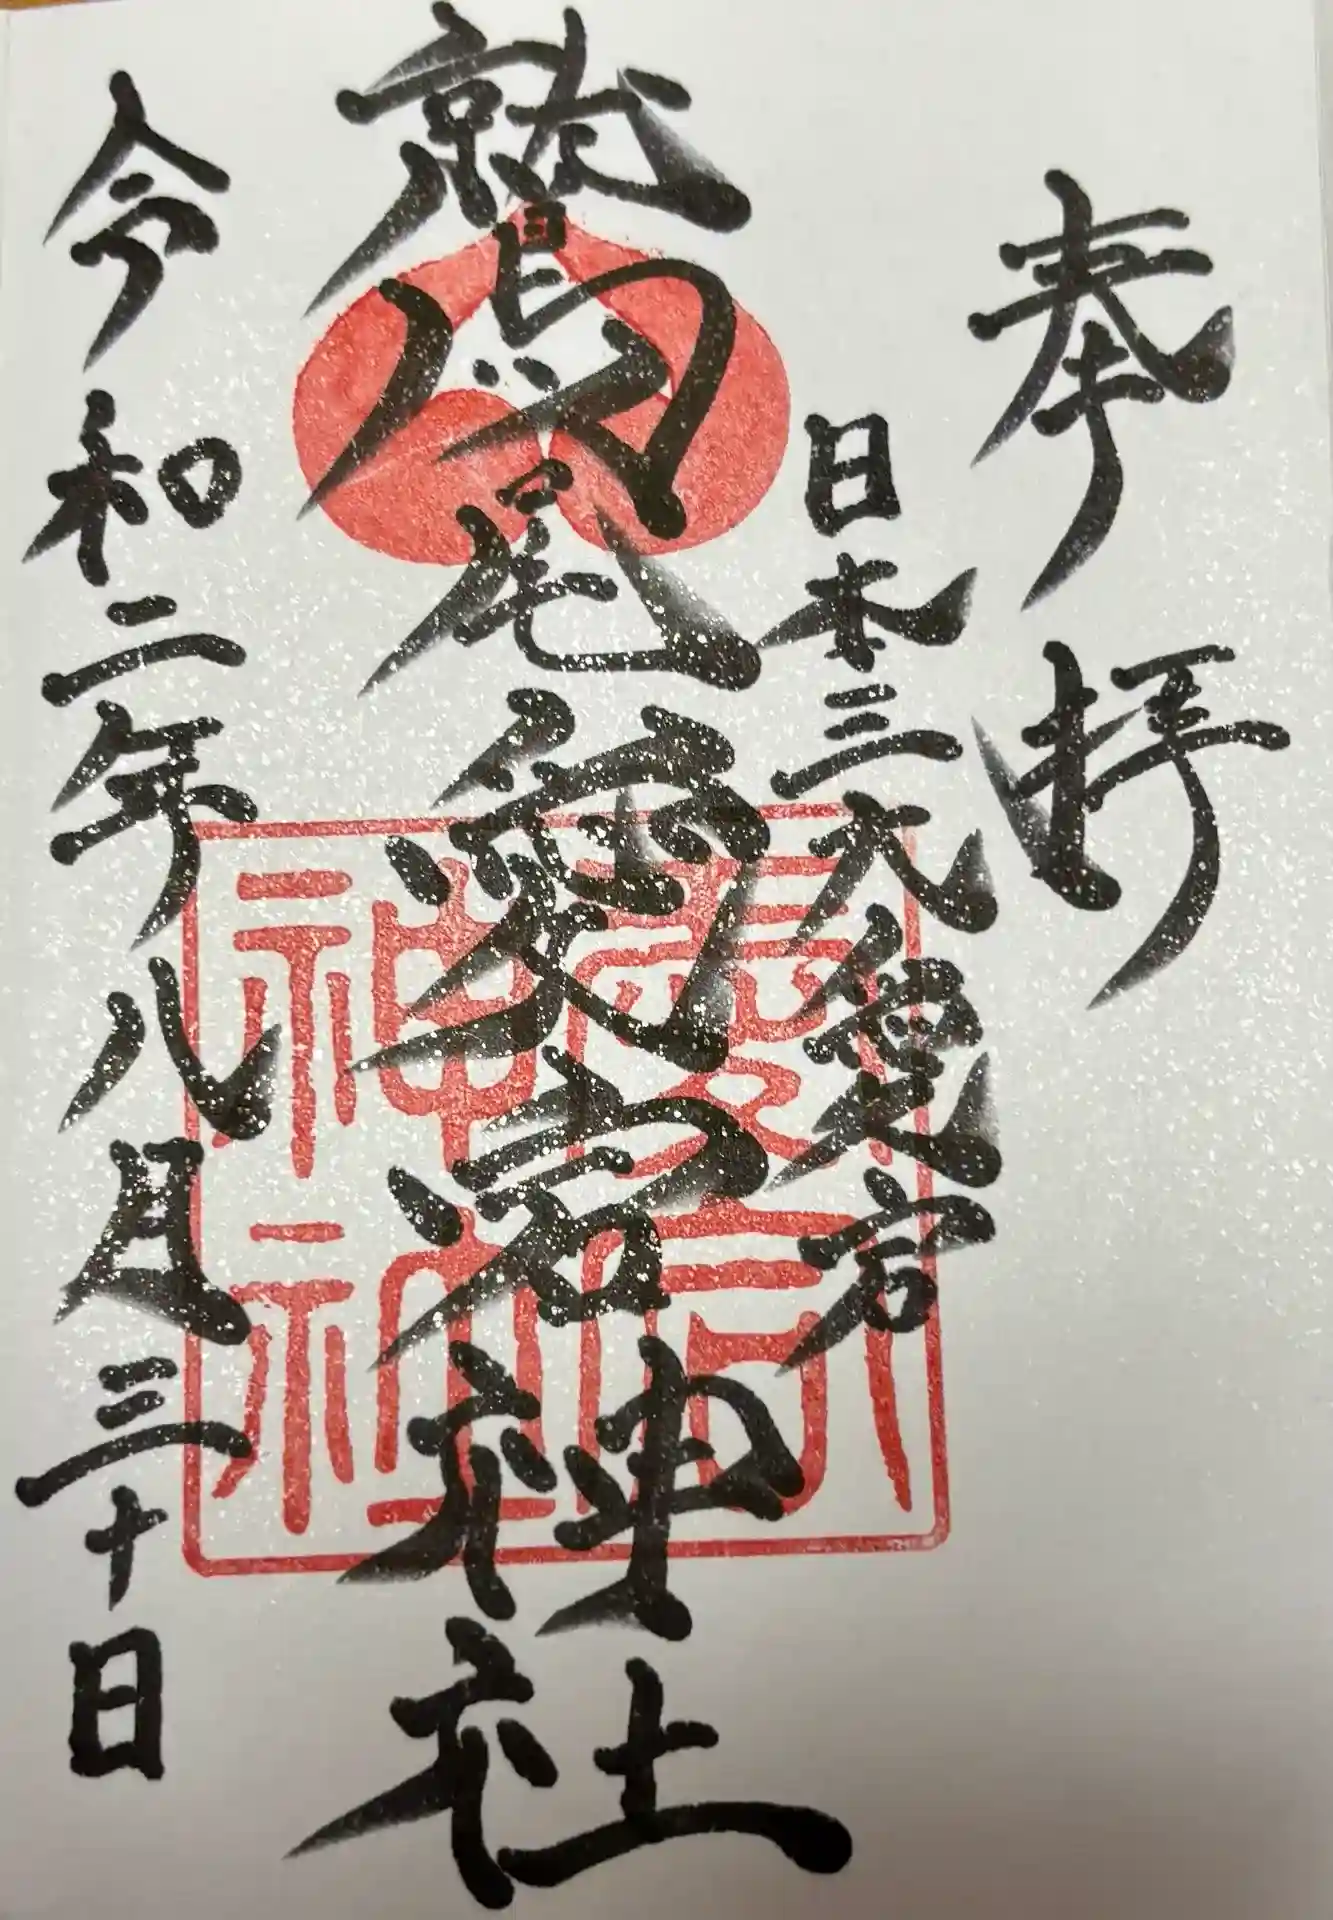 奉拝
日本三大愛宕
鷲尾愛宕神社
令和二年八月三十日
愛宕
神社